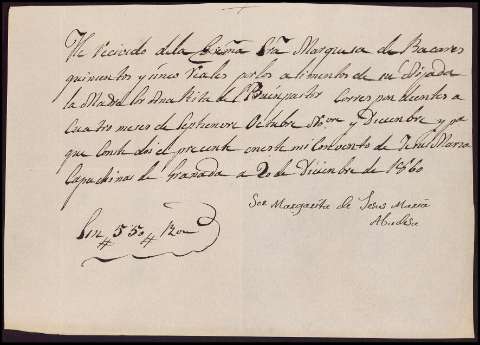 He recivido de la Exma Sra Marquesa de Bacares
quinientos y cinco reales por los alimentos de su Aijada
la Madre Sor Ana Rita del Buen pastor Correspondientes a
Cuatro meses de Septienvre Octubre Nore y Diciembre y pa
que Conste doi el presente en este mi Convento de Jesus Maria
Capuchinas de Granada a 20 de Diciembre de 1860
Sor Margarita de Jesus Maria
Abadesa
Son # 550 # Ron